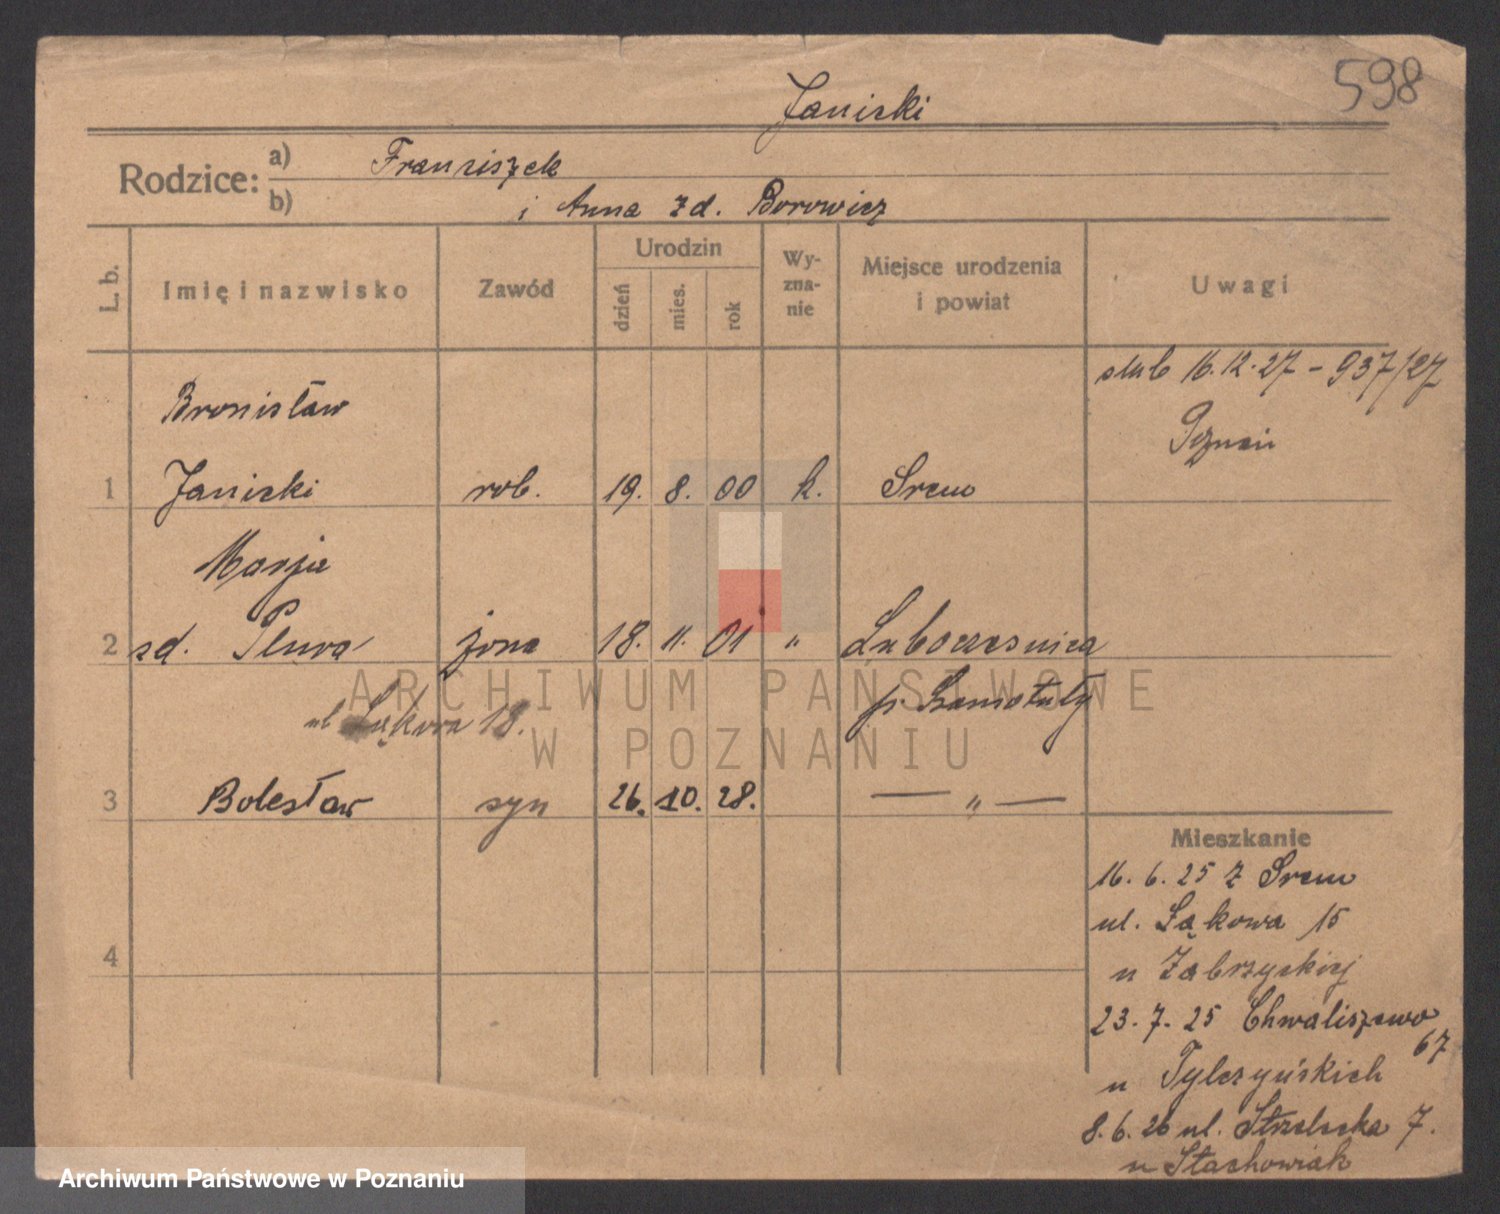 598
Janicki
Rodzice: a) Franciszek
b) i Anna zd. Borowicz
L. b. Imię i nazwisko Zawód Urodzin dzień mies. rok Wy-zna-nie Miejsce urodzenia i powiat Uwagi
ślub 16.12.27 – 937/27
Poznań
Bronisław
1 Janicki rob. 19. 8. 00 k. Śrem
Marja
2 zd. żona 18. 11. 01 "
p. Szamotuły
ul Łąkowa 18.
3 Bolesław syn 26. 10. 28. — " —
4
Mieszkanie
16. 6. 25 z Śrem
ul. Łąkowa 15
u Zabrzyckiej
23. 7. 25 Chwaliszewo
67
u Tylczyńskich
8. 6. 26 ul. Strzelecka 7.
u Stachowiak
ARCHIWUM PAŃSTWOWE
W POZNANIU
Archiwum Państwowe w Poznaniu